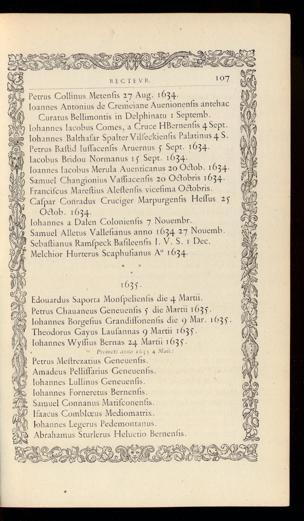 RECTEVR. 107
Petrus Collinus Metensis 27 Aug. 1634.
Ioannes Antonius de Cremciane Auenionensis antehac
Curatus Bellimontis in Delphinatu 1 Septemb.
Iohannes Iacobus Comes, a Cruce HBernensis 4 Sept.
Iohannes Balthasar Spalter Vilseckiensis Palatinus 4 S.
Petrus Bastid Iussacensis Aruernus 5 Sept. 1634.
Iacobus Bridou Normanus 15 Sept. 1634.
Ioannes Iacobus Merula Auenticanus 20 Octob. 1634.
Samuel Changionius Vassiacensis 20 Octobris 1634.
Franciscus Marestius Alestensis vicesima Octobris.
Caspar Conradus Cruciger Marpurgensis Hessus 25
Octob. 1634.
Iohannes a Dalen Coloniensis 7 Nouembr.
Samuel Alletus Vallesianus anno 1634 27 Nouemb.
Sebastianus Ramspeck Basileensis I. V. S. 1 Dec.
Melchior Hurterus Scaphusianus A° 1634.
* * *
1635.
Edouardus Saporta Monspeliensis die 4 Martii.
Petrus Chauaneus Geneuensis 5 die Martii 1635.
Iohannes Borgesius Grandissonensis die 9 Mar. 1635.
Theodorus Gayus Lausannas 9 Martii 1635.
Iohannes Wyssius Bernas 24 Martii 1635.
Promoti anno 1635 4 Maii:
Petrus Mestrezatius Geneuensis.
Amadeus Pellissarius Geneuensis.
Iohannes Lullinus Geneuensis.
Iohannes Forneretus Bernensis.
Samuel Connanus Matisconensis.
Isaacus Comblœus Mediomatrix.
Iohannes Legerus Pedemontanus.
Abrahamus Sturlerus Heluetio Bernensis.